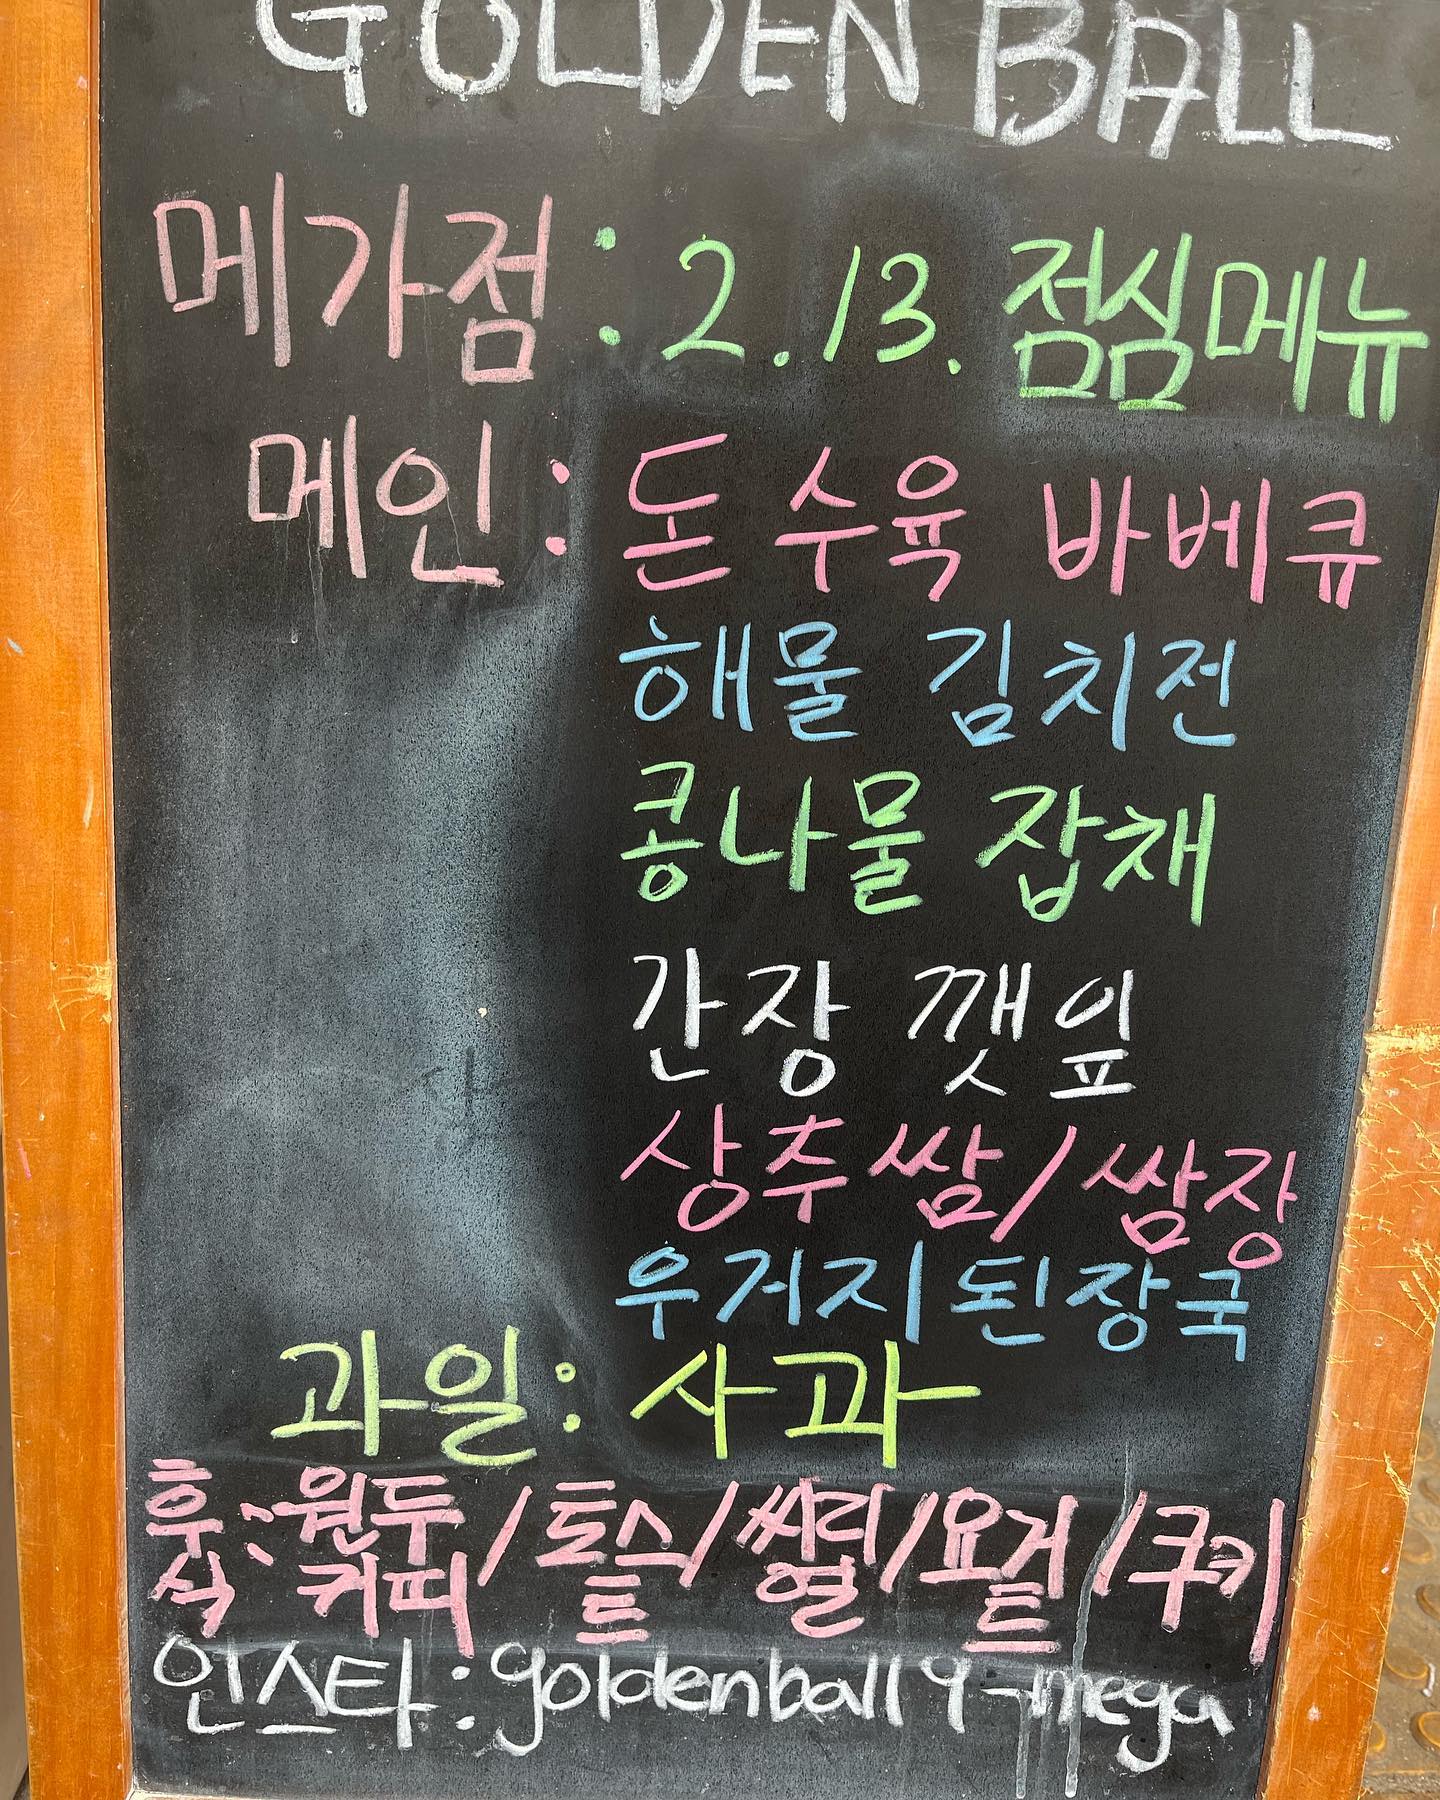 GOLDEN BALL
메가점 : 2.13. 점심메뉴
메인 : 돈 수육 바베큐
해물 김치전
콩나물 잡채
간장 깻잎
상추쌈/쌈장
우거지된장국
과일 : 사과
후식 : 원두커피/토스트/씨리얼/요거트/쿠키
인스타 : goldenball9_mega